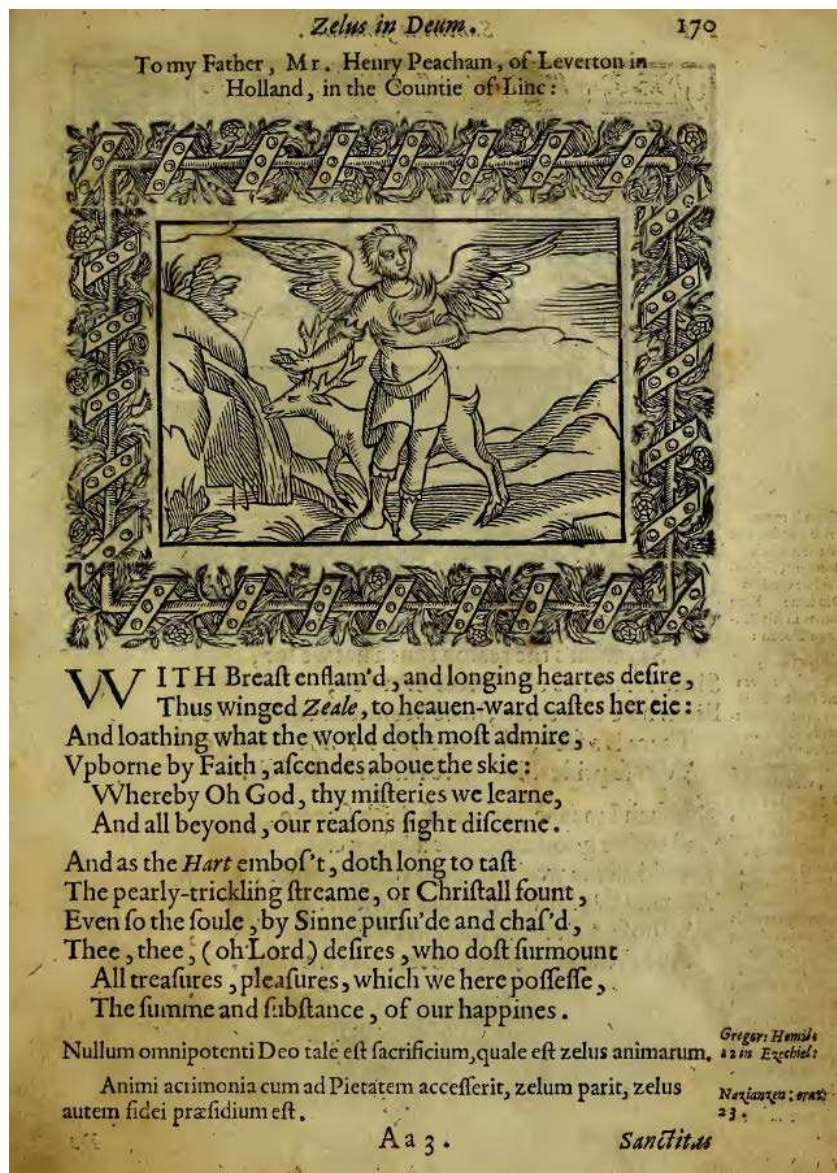 Zelus in Deum. 170
To my Father, Mr. Henry Peacham, of Leverton in
Holland, in the Countie of Linc:
WITH Breaſt enflam'd, and longing heartes deſire,
Thus winged Zeale, to heauen-ward caſtes her eie:
And loathing what the world doth moſt admire,
Vpborne by Faith, aſcendes aboue the skie:
Whereby Oh God, thy miſteries we learne,
And all beyond, our reaſons ſight diſcerne.
And as the Hart emboſ't, doth long to taſt
The pearly-trickling ſtreame, or Chriſtall fount,
Even ſo the ſoule, by Sinne purſu'de and chaſ'd,
Thee, thee, (oh Lord) deſires, who doſt ſurmount
All treaſures, pleaſures, which we here poſſeſſe,
The ſumme and ſubſtance, of our happines.
Nullum omnipotenti Deo tale eſt ſacrificium, quale eſt zelus animarum.
Gregor: Homil:
12 in Ezechiel:
Animi acrimonia cum ad Pietatem acceſſerit, zelum parit, zelus
autem fidei præſidium eſt.
Nazianzen: orat:
23.
Aa3. Sanctitas